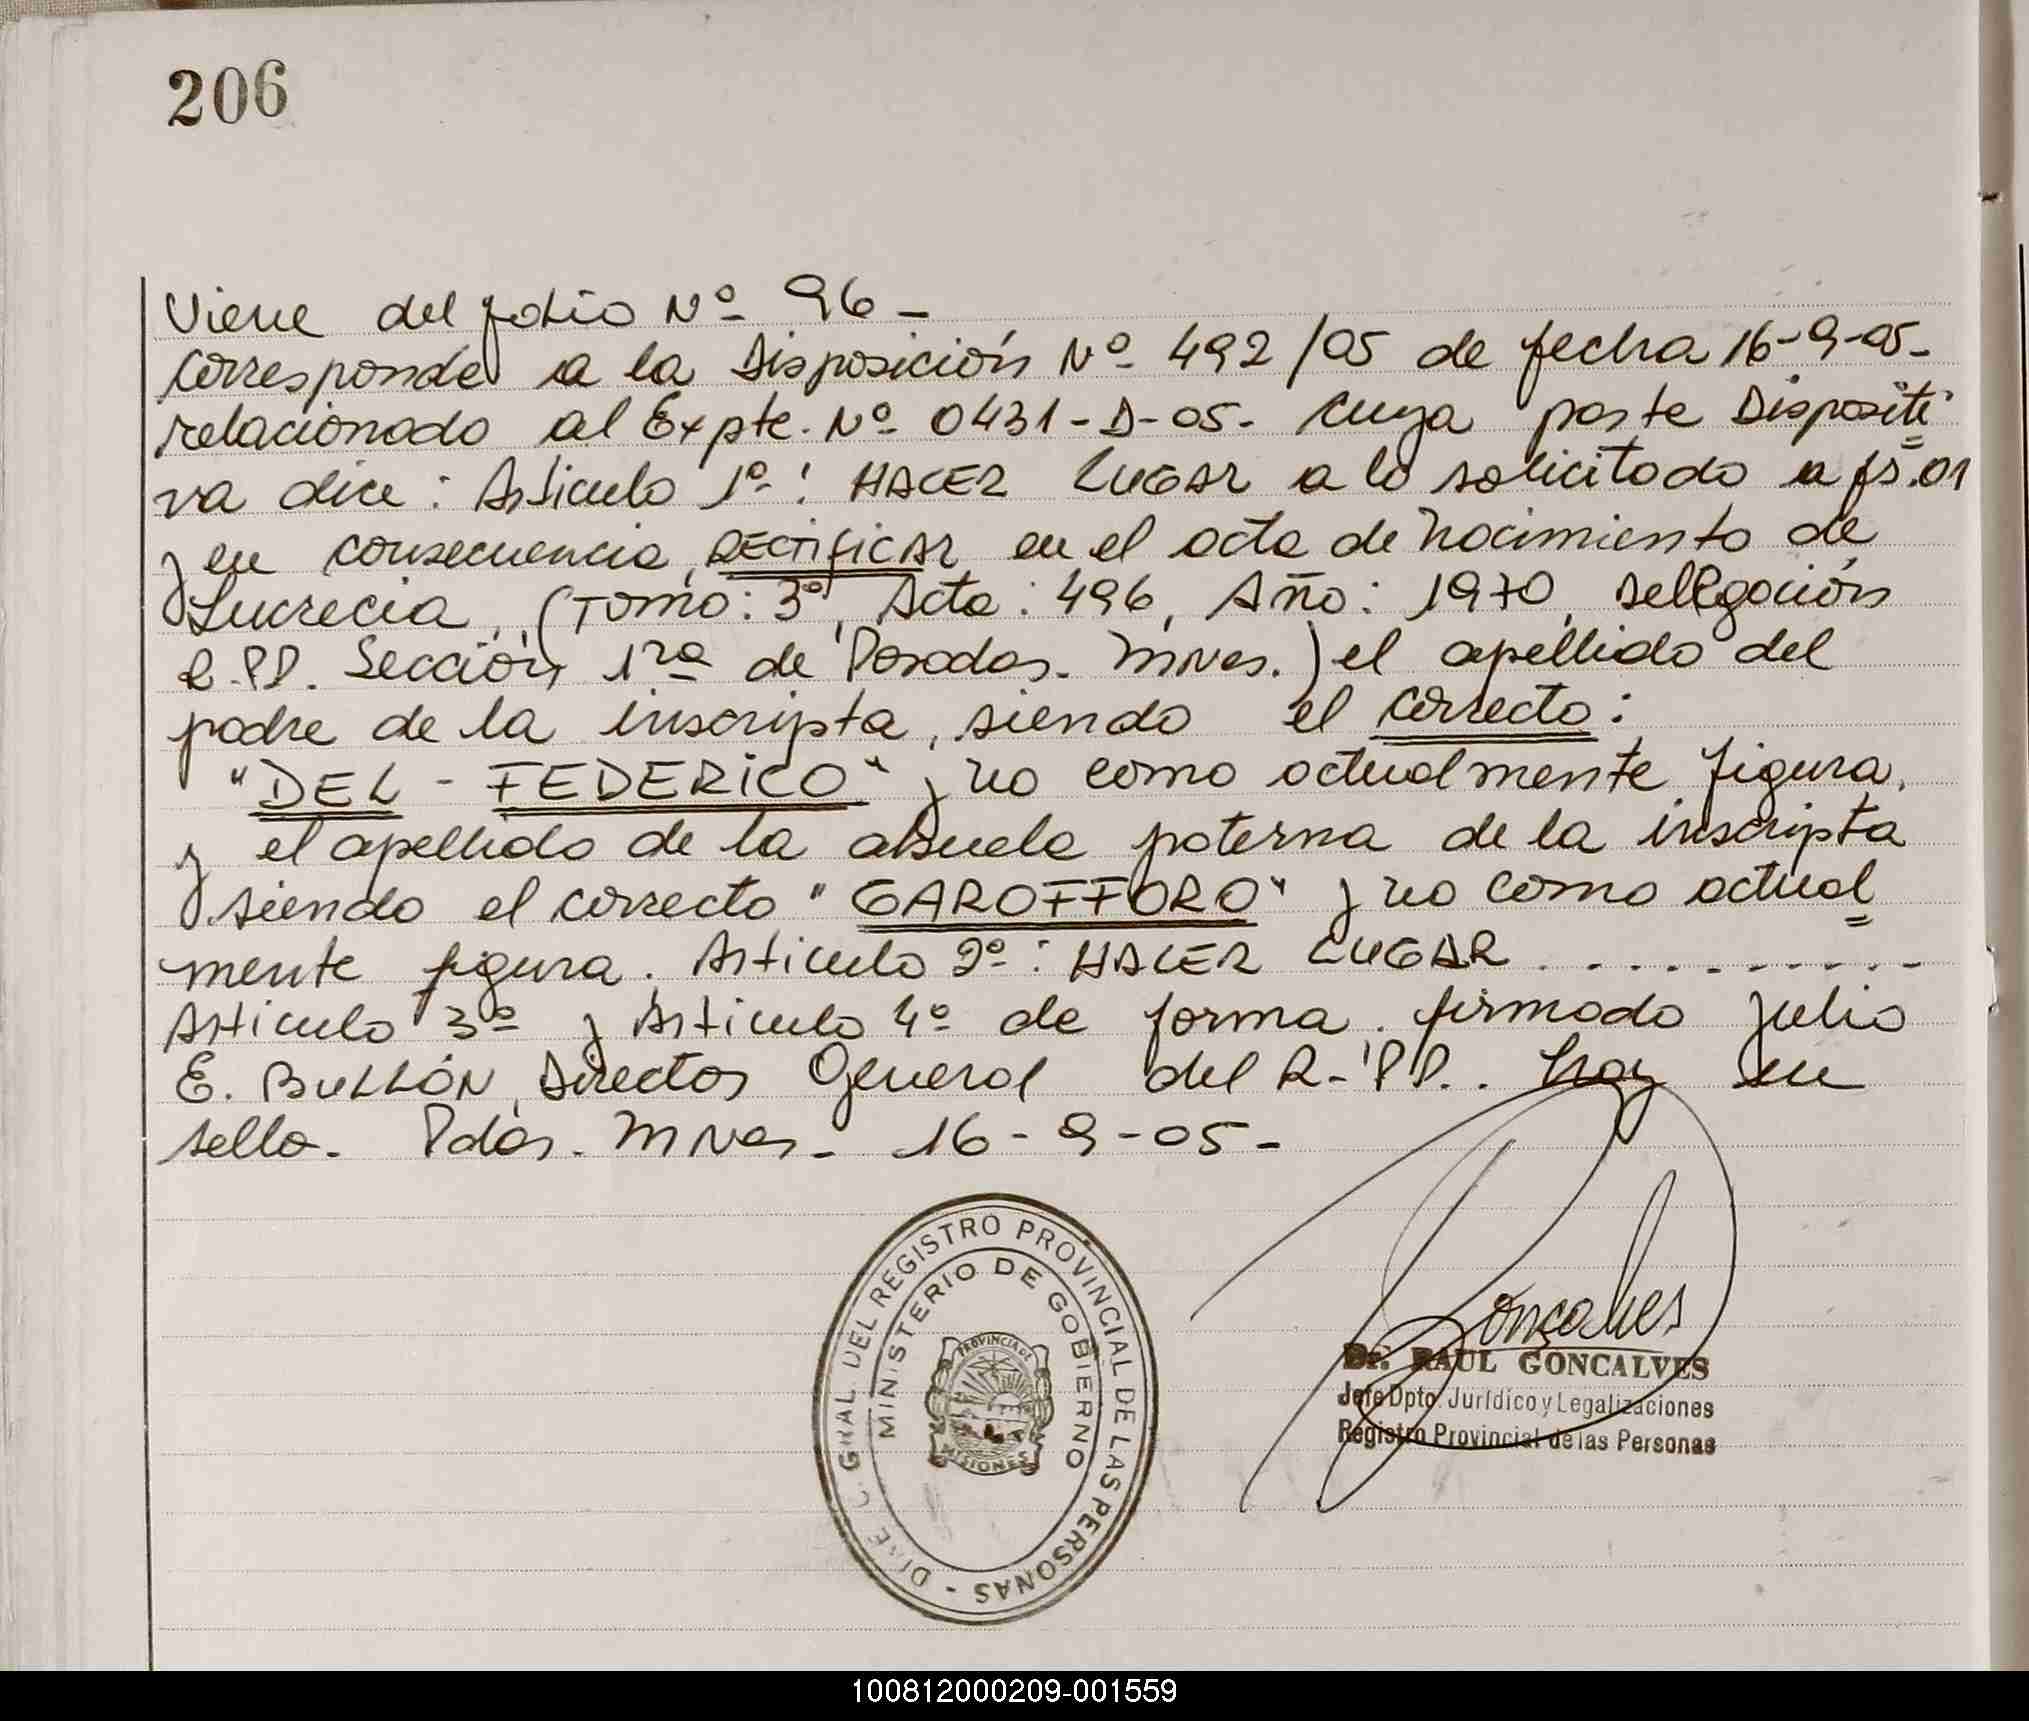 206
Viene del folio Nº 96 -
Corresponde a la Disposición Nº 492/05 de fecha 16-9-05-
relacionado al Expte. Nº 0431-D-05- cuya parte Dispositi=
va dice: Articulo 1º: HACER LUGAR a lo solicitado a fs.01
y en consecuencia, RECTIFICAR en el acta de nacimiento de
Lucrecia, (Tomo: 3º, Acta: 496, Año: 1970, Delegación
R.PP. Sección 1ra de Posadas- Mnes.) el apellido del
padre de la inscripta, siendo el correcto:
"DEL - FEDERICO" y no como actualmente figura,
y el apellido de la abuela paterna de la inscripta
siendo el correcto "GAROFFORO" y no como actual=
mente figura. Articulo 2º: HACER LUGAR ..........
Articulo 3º y Articulo 4º de forma. firmado Julio
E. BULLÓN, Director General del R-PP.. hay un
sello. Pdas. Mnes- 16-9-05-
DIREC. GRAL. DEL REGISTRO PROVINCIAL DE LAS PERSONAS -
MINISTERIO DE GOBIERNO
PROVINCIA DE
MISIONES
Gonçalves
Dr. RAUL GONCALVES
Jefe Dpto. Jurídico y Legalizaciones
Registro Provincial de las Personas
100812000209-001559